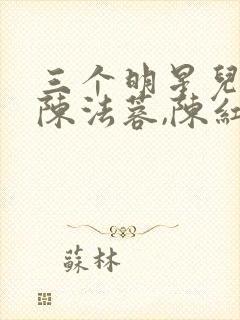 三个明星兒
陳法蓉,陳紅
蘇林